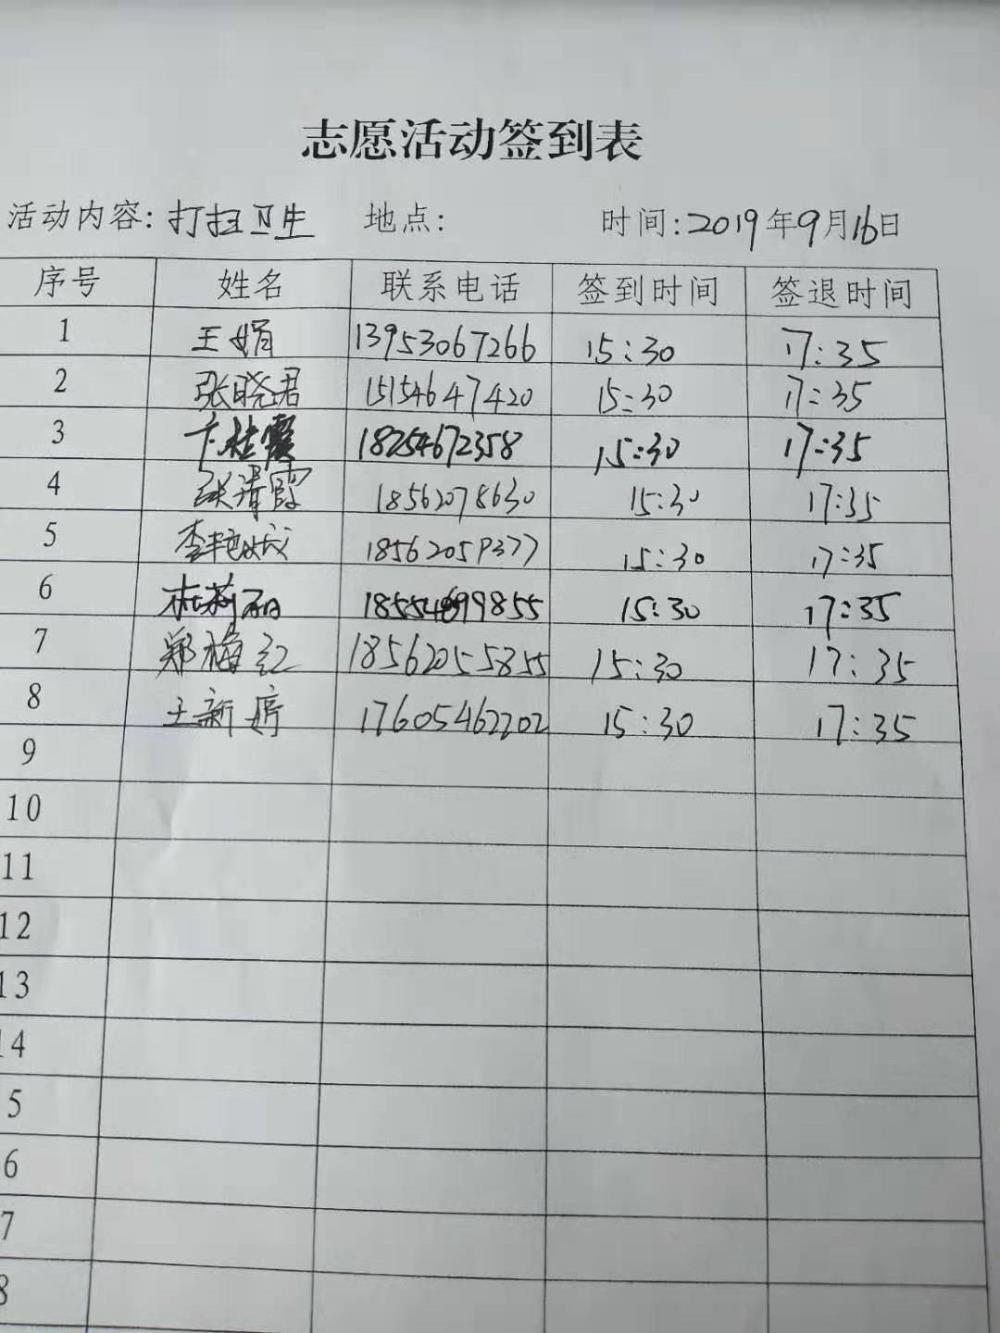 志愿活动签到表
活动内容: 打扫卫生 地点: 时间:2019年9月16日
序号 姓名 联系电话 签到时间 签退时间
1 王娟 13953067266 15:30 17:35
2 张晓君 15154647420 15:30 17:35
3 卞桂霞 18254672358 15:30 17:35
4 张清霞 18562078630 15:30 17:35
5 15:30 17:35
6 杜莉丽 15:30 17:35
7 郑梅红 18562055855 15:30 17:35
8 王新婷 17605462202 15:30 17:35
9
10
11
12
13
14
5
6
7
8